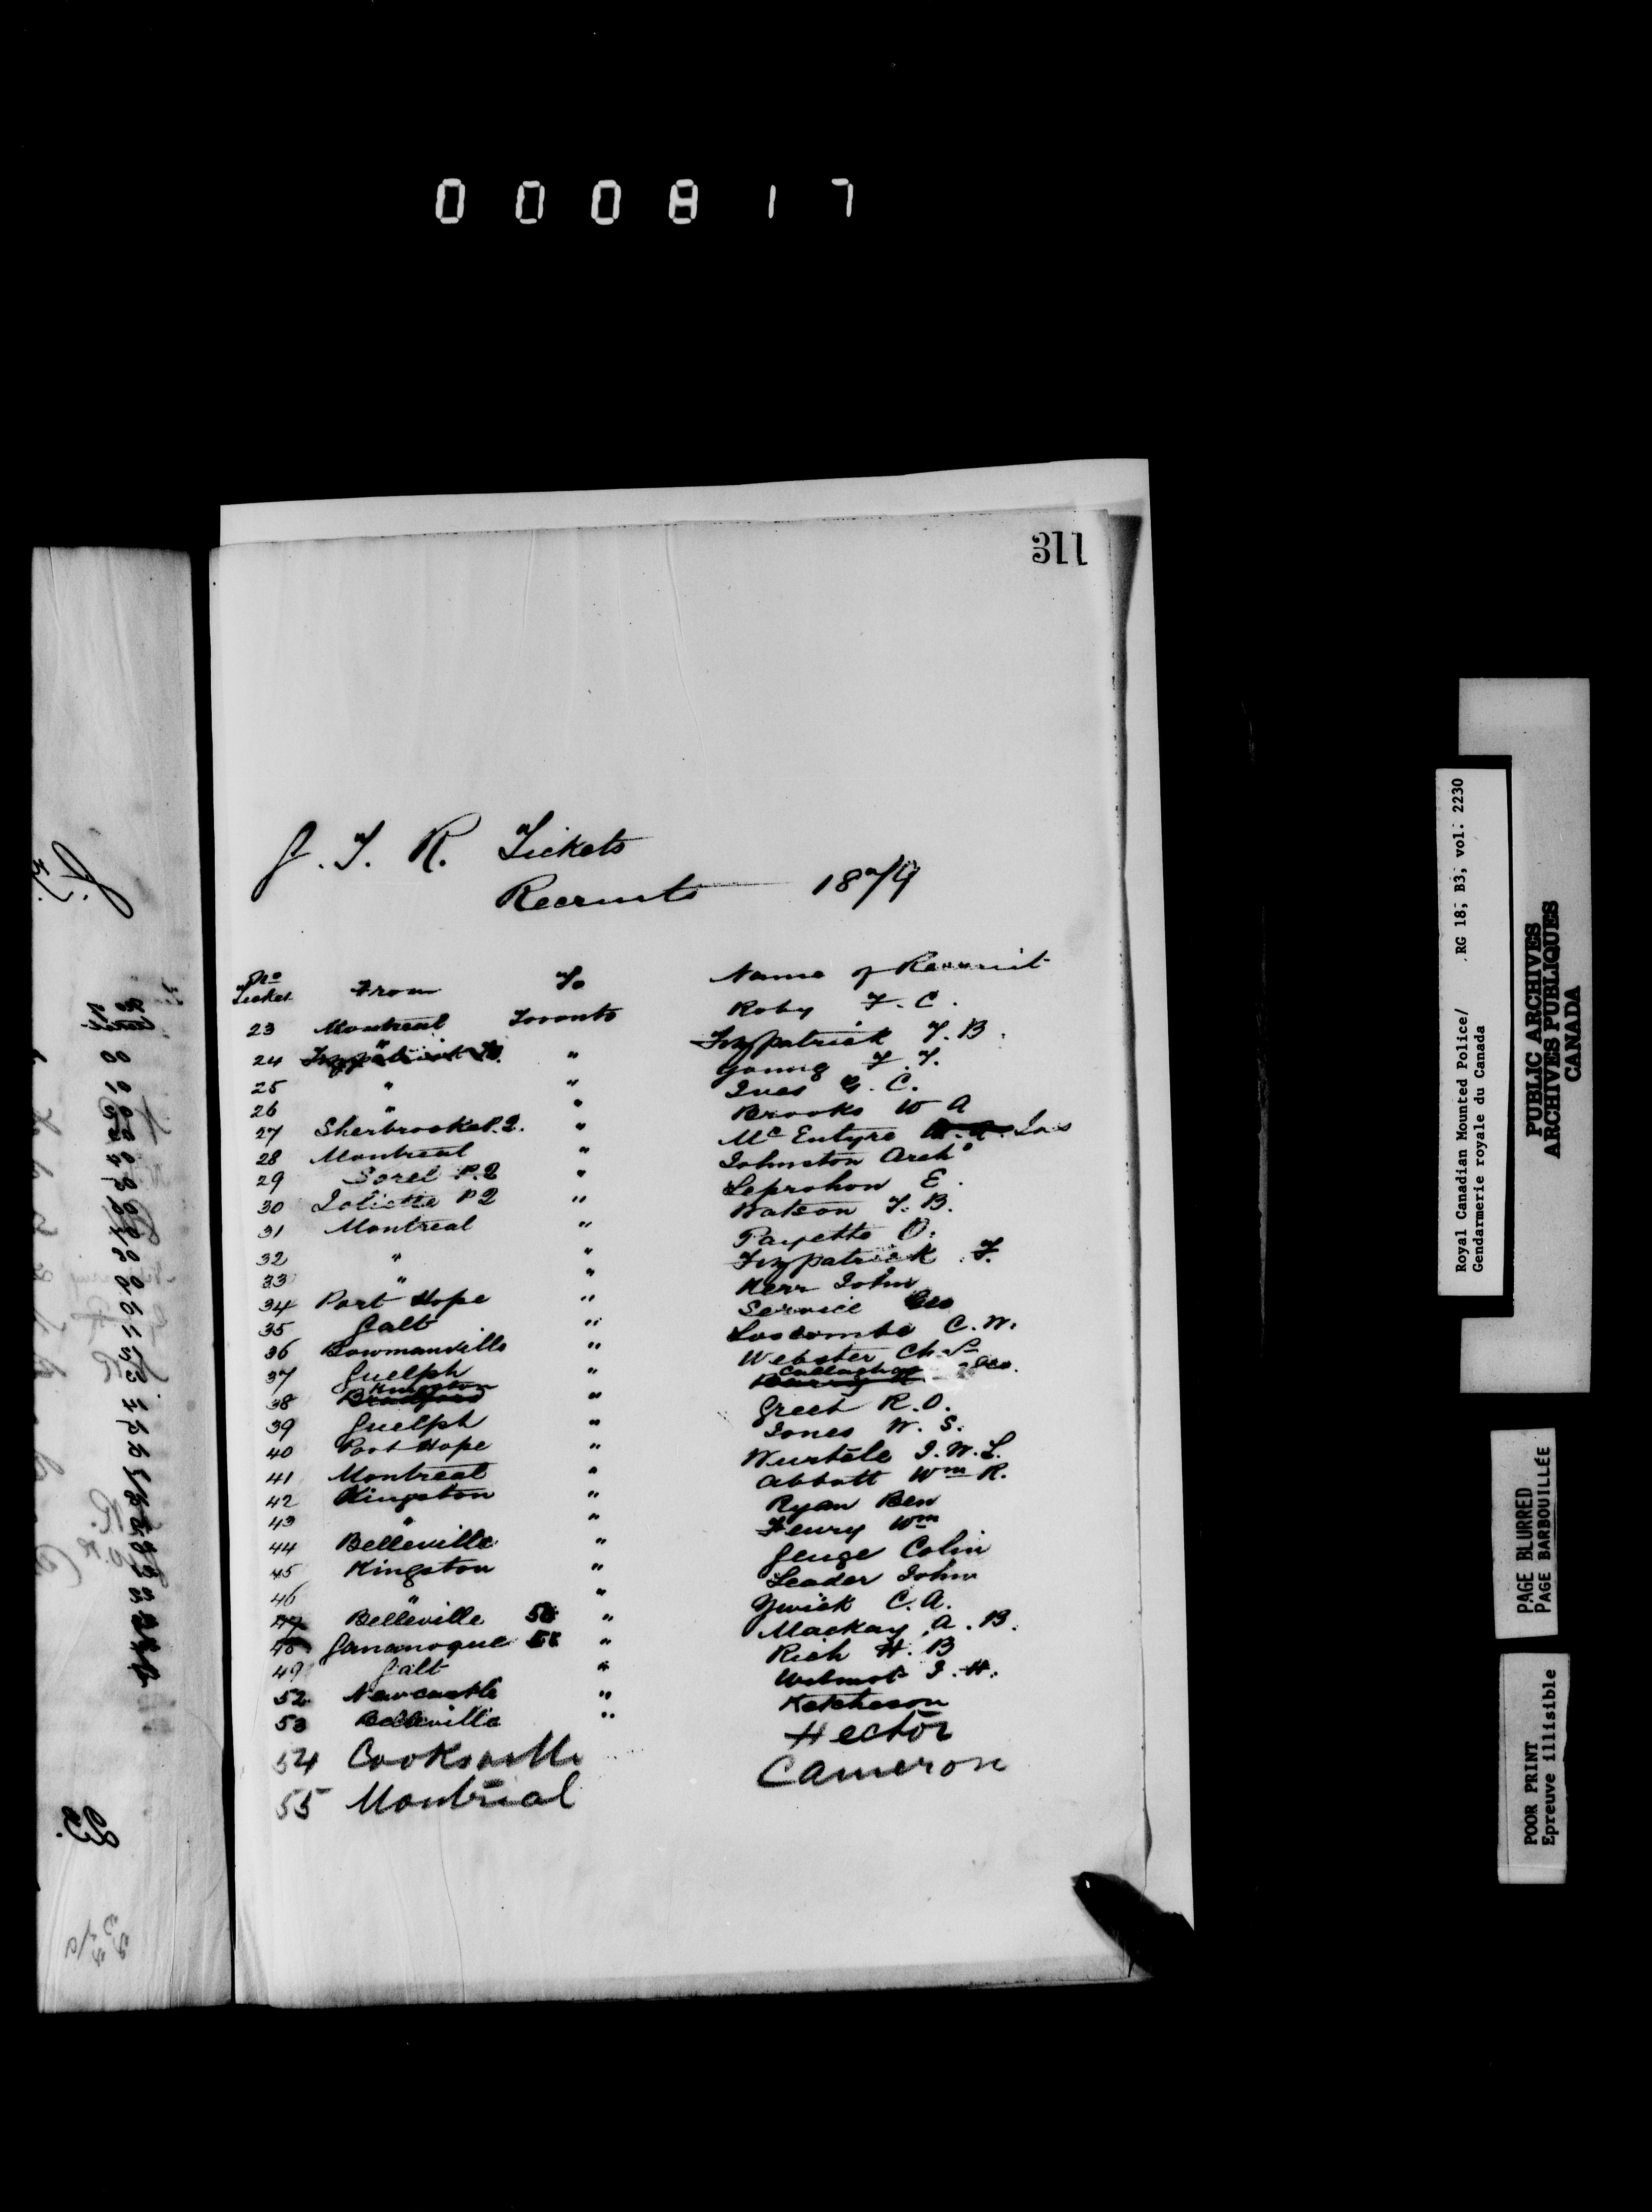 000817
311
G. T. R. Tickets
Recruits 1879
No Ticket From To Name of Recruit
23 Montreal Toronto Roby F. C.
24 " " Fitzpatrick T. B.
25 " " Young F. T.
26 " " Ives G. C.
27 Sherbrooke P.Q. " Brooks W A
28 Montreal " McEntyre Jas
29 Sorel P.Q " Johnston Archd
30 Joliette PQ " Leprohon E.
31 Montreal " Watson T. B.
32 " " Payette O.
33 " " Fitzpatrick F.
34 Port Hope " Kerr John
35 Galt " Service Geo
36 Bowmanville " Loscombe C. W.
37 Guelph " Webster Chas
38 Kingston " Callaghan Geo.
39 Guelph " Greet R. O.
40 Port Hope " Jones W. S.
41 Montreal " Wurtele J. W. L.
42 Kingston " Abbott Wm R.
43 " " Ryan Ben
44 Belleville " Fewry Wm
45 Kingston " Genge Colin
46 " " Leader John
47 Belleville 50 " Zwick C. A.
48 Gananoque 51 " Mackay A. B.
49 Galt " Rich H. B
52 Newcastle " Wilmot J. H.
53 Belleville " Ketcheson
54 Cooksville Hector
55 Montreal Cameron
Royal Canadian Mounted Police/ RG 18, B3, vol. 2230
Gendarmerie royale du Canada
PUBLIC ARCHIVES
ARCHIVES PUBLIQUES
CANADA
PAGE BLURRED
PAGE BARBOUILLÉE
POOR PRINT
Epreuve illisible